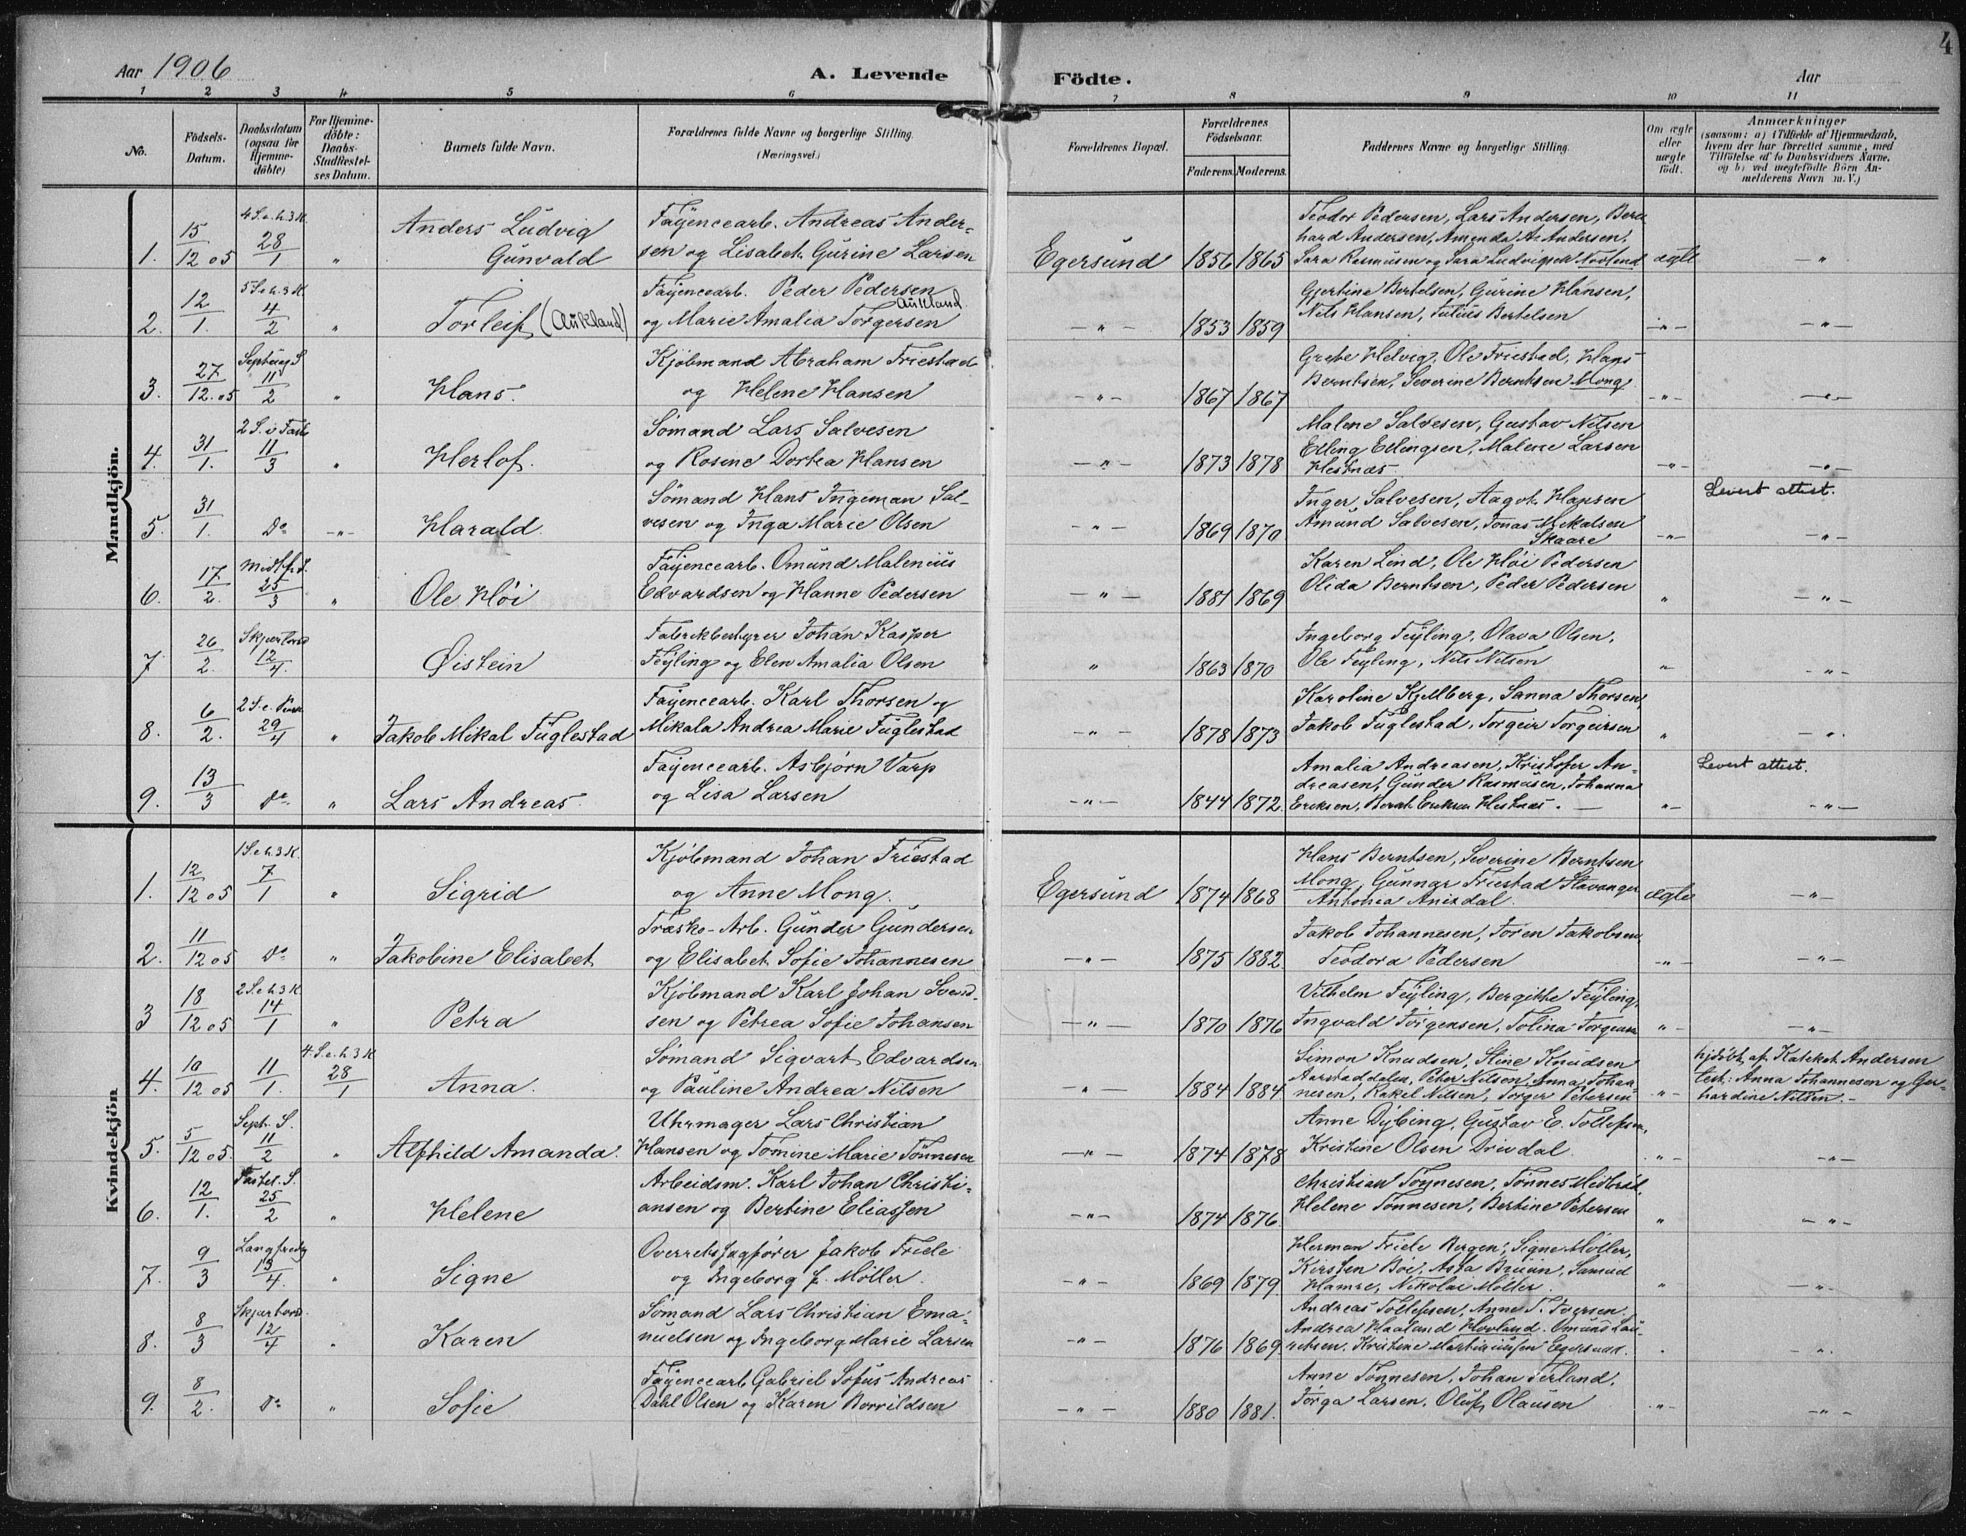 Aar 1906
A. Levende Födte.
Aar
4
1 2 3 4 5 6 7 8 9 10 11
No.
Födsels-Datum.
Daabsdatum (ogsaa for Hjemmedöbte)
For Hjemmedöbte: Daabs-Stadfæstelses Datum.
Barnets fulde Navn.
Forældrenes fulde Navne og borgerlige Stilling.
(Næringsvei.)
Forældrenes Bopæl.
Forældrenes Födselsaar.
Faderens. Moderens.
Faddernes Navne og borgerlige Stilling.
Om ægte eller uægte födt.
Anmærkninger
(saasom: a) i Tilfælde af Hjemmedaab, hvem der har forrettet samme, med Tilföielse af to Daabsvidners Navne, og b) ved uægtefödte Börn Anmelderens Navn m. V.)
Mandkjön.
1. 15/12 05 4 S. e. h. 3 K. 28/1 " Anders Ludvig Gunvald
Fayencearb. Andreas Andersen og Lisabet Gurine Larsen
Egersund 1856 1865
Teodor Pedersen, Lars Andersen, Bernhard Andersen, Amanda A. Andersen, Sara Rasmusen og Sara Ludvigsen Nodland ægte — " —
2. 12/1. 5 S. e. h. 3 K. 4/2 " Torleif (Aukland)
Fayencearb. Peder Pedersen Aukland og Marie Amalia Torgersen
— " — 1853 1859
Gjertine Bertelsen, Gurine Hansen, Nils Hansen, Julius Bertelsen — " — — " —
3. 27/12. 05 Septuag. S. 11/2 " Hans.
Kjöbmand Abraham Friestad og Helene Hansen
— " — 1867 1867
Grete Helvig, Ole Friestad, Hans Berntsen, Severine Berntsen Mong. — " — — " —
4. 31/1. 2 S. i Faste 11/3 " Herlof.
Sømand Lars Salvesen og Rosine Dortea Hansen
— " — 1873 1878
Malene Salvesen, Gustav Nilsen Edling Edlingsen, Malene Larsen Hestnæs — " — — " —
5. 31/1. Do — " — Harald.
Sømand Hans Ingeman Salvesen og Inga Marie Olsen
— " — 1869 1870
Inger Salvesen, Aagot Hansen Amund Salvesen, Jonas Mikalsen Skaare — " — Levert attest. — " —
6. 17/2. Midtf. S. 25/3 " Ole Høi
Fayencearb. Omund Malenius Edvardsen og Hanne Pedersen
— " — 1881 1869
Karen Lind, Ole Høi Pedersen Olida Berntsen, Peder Pedersen " — " —
7. 26/2. Skjærtorsd 12/4. " Øistein
Fabrikbestyrer Johan Kasper Feyling og Elen Amalia Olsen
" 1863 1870
Ingeborg Feyling, Olava Olsen, Ole Feyling, Nils Nilsen " "
8. 6/2. 2 S. e. Paask 29/4 " Jakob Mikal Fuglestad
Fayencearb. Karl Thorsen og Mikala Andrea Marie Fuglestad
— " — 1878 1873
Karoline Kjellberg, Sanna Thorsen, Jakob Fuglestad, Torgeir Torgeirsen " — " .
9. 13/3 Do. " Lars Andreas.
Fayencearb. Asbjørn Varp og Lisa Larsen
— " — 1844 1872.
Amalia Andreasen, Kristofer Andreasen, Gunder Rasmusen, Johanna Eriksen, Berat Eriksen Hestnæs. — — " — Levert attest. — " —
Kvindekjön
1. 12/12 05 1 S. e. h. 3 K. 7/1 " Sigrid
Kjöbmand Johan Friestad og Anne Mong.
Egersund 1874 1868
Hans Berntsen, Severine Berntsen Mong, Gunnar Friestad Stavanger Antonea Anisdal. ægte — " —
2. 11/12 05 Do " Jakobine Elisabet
Træsko-Arb. Gunder Gundersen og Elisabet Sofie Johannesen
— " — 1875 1882
Jakob Johannesen, Joren Jakobsen Teodora Pedersen — " — — " —
3 18/12 05 2 S. e. h. 3 K. 14/1 " Petra
Kjöbmand Karl Johan Svendsen og Petrea Sofie Johansen
— " — 1870 1876
Vilhelm Feyling, Bergitte Feyling, Ingvald Jörgensen, Tolina Torgersen — " — — " —
4. 10/12 05 11/1. 4 S. e. h. 3 K. 28/1 Anna.
Sømand Sigvart Edvardsen og Pauline Andrea Nilsen
— " — 1884 1884
Simon Knudsen, Stine Knudsen Aarstaddalen, Peter Nilsen, Anna Johannesen, Rakel Nilsen, Torger Petersen — " — hjdöbt af Kateket Andersen test: Anna Johannesen og Gerhardine Nilsen. —
5. 5/12 05. Sept. S. 11/2 " Alfhild Amanda.
Uhrmager Lars Christian Hansen og Tomine Marie Tönnesen
— " — 1874 1878
Anne Dybing, Gustav E. Tollefsen, Kristine Olsen Drivdal. — " — — " —
6. 12/1. Fastel. S. 25/2 " Helene
Arbeidsm. Karl Johan Christiansen og Bertine Eliassen
— " — 1874 1876.
Christian Tönnesen, Tönnes Midbrød, Helene Tönnesen, Bertine Petersen " — " —
7. 9/3 Langfredag 13/4. " Signe
Overretssagfører Jakob Friele og Ingeborg f. Möller.
— " — 1869 1879.
Herman Friele Bergen, Signe Möller, Kirsten Boe, Asta Bruun, Samuel Hamre, Nikolai Möller. " — " —
8. 8/3 Skjærtorsd. 12/4 . Karen
Sømand Lars Christian Emanuelsen og Ingeborg Marie Larsen
— " — 1876 1869
Andreas Tollefsen, Anne T. Iversen. Andrea Haaland Hovland. Omund Lauritsen. Kristine Martiniussen Egersund. . — " .
9. 8/2. Do " Sofie
Fayencearb. Gabriel Sofus Andreas Dahl Olsen og Karen Borrildsen
— " — 1880 1881.
Anne Tönnesen, Johan Terland, Torga Larsen, Oluf Olausen — " — — " —